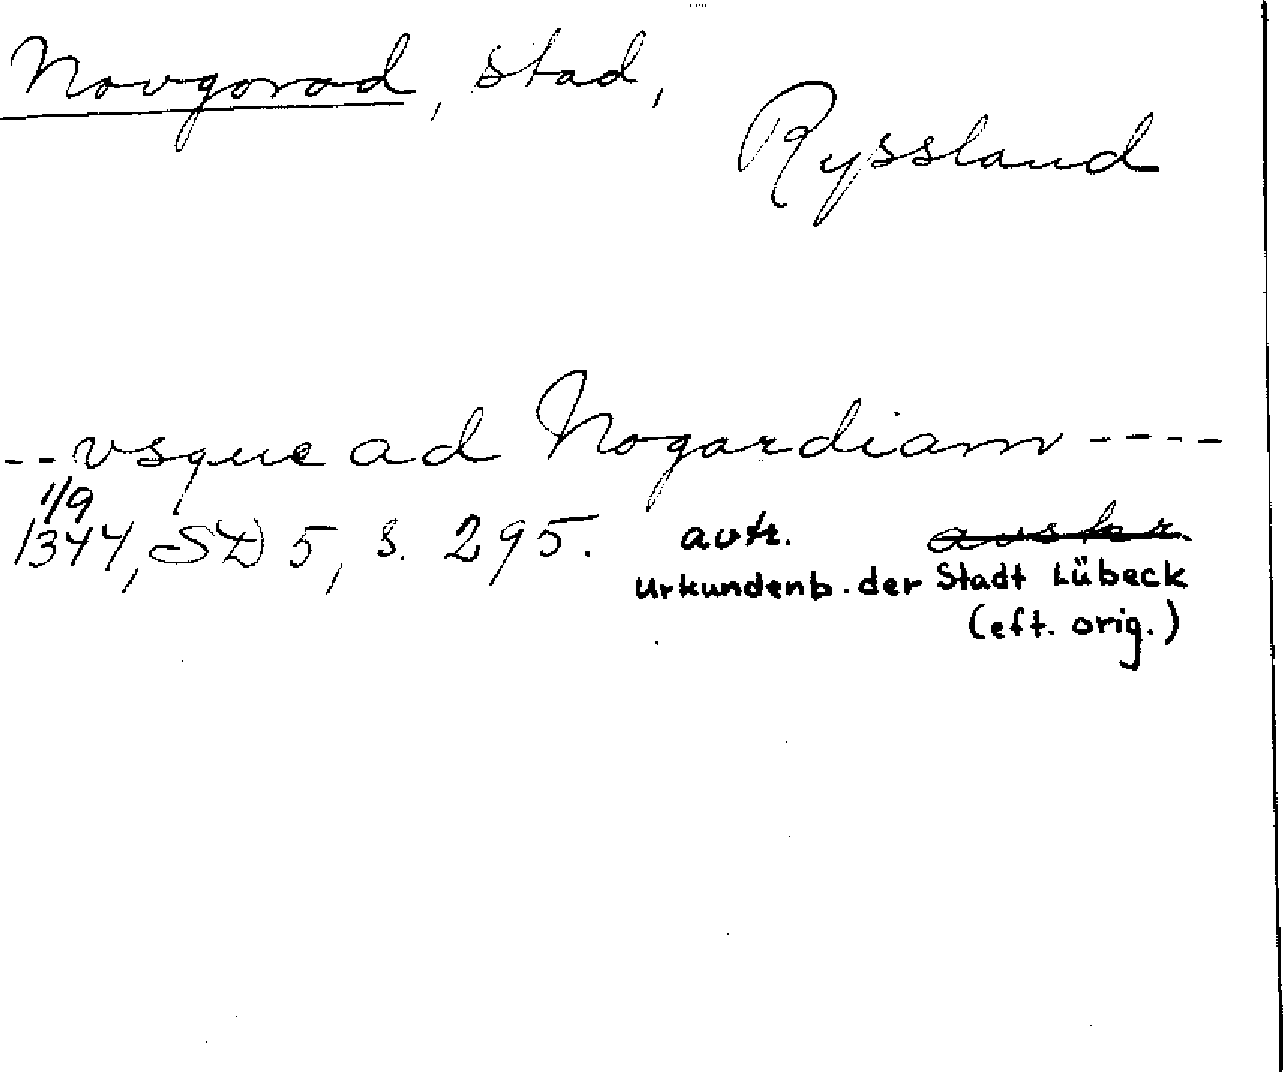 Novgorod, stad,
Ryssland
--vsque ad Nogardiam----
1/9
1344, SD 5, s. 295. avtr. avskr.
Urkundenb. der Stadt Lübeck
(eft. orig.)